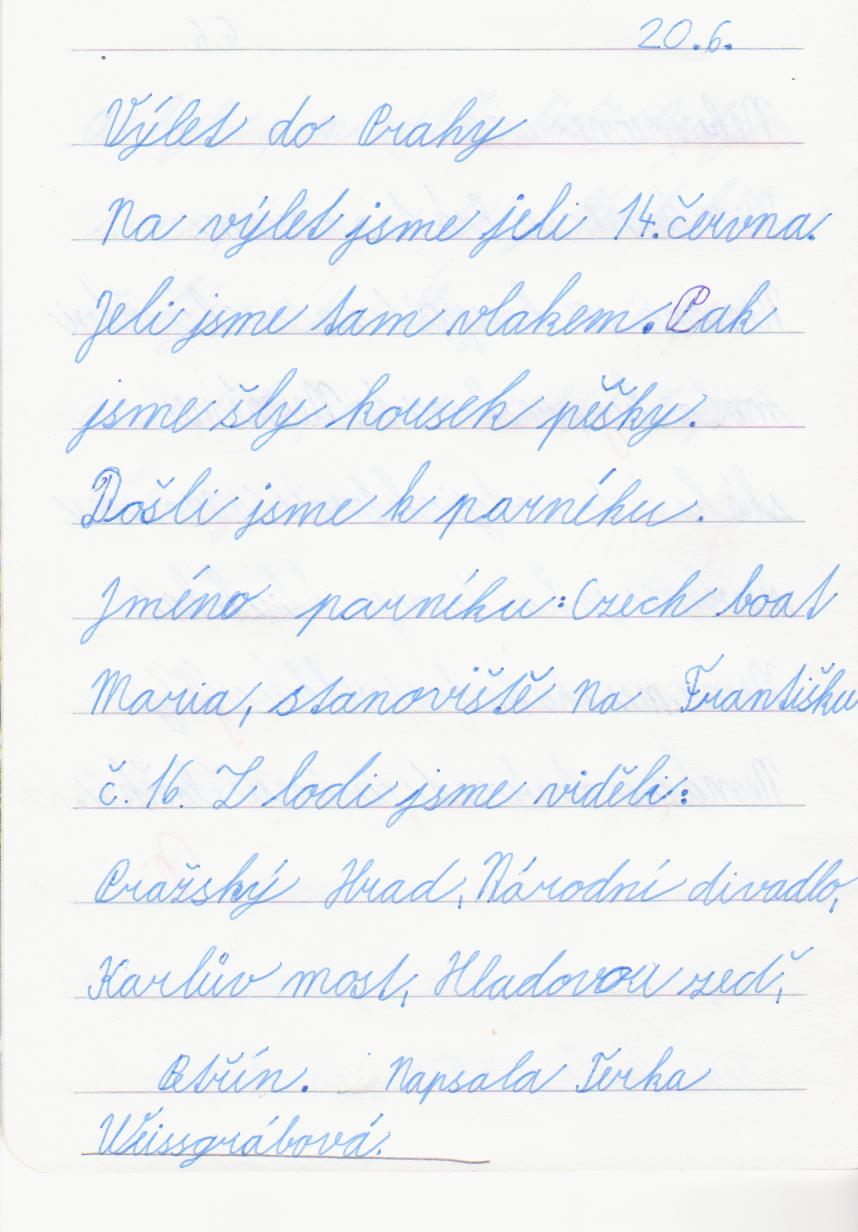 20.6.
Výlet do Prahy
Na výlet jsme jeli 14. června.
Jeli jsme tam vlakem. Pak
jsme šly kousek pěšky.
Došli jsme k parníku.
Jméno parníku: Czech boat
Maria, stanoviště na Františku
č. 16. Z lodi jsme viděli:
Pražský Hrad, Národní divadlo,
Karlův most, Hladovou zeď,
Petřín. Napsala Térka
Weissgrábová.